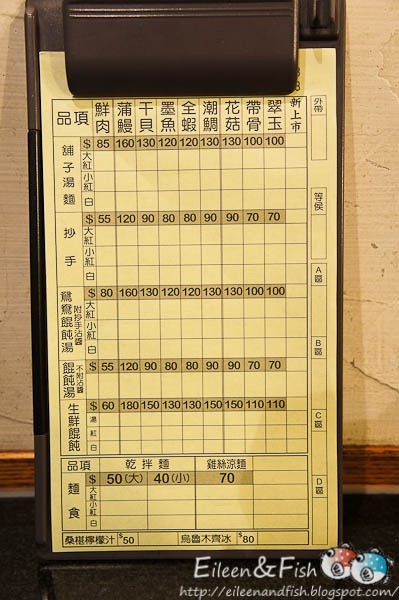 品項 鮮肉 蒲鰻 干貝 墨魚 全蝦 潮鯛 花菇 帶骨 翠玉 新上市 外帶
舖子湯麵 $ 85 160 130 120 120 130 130 100 100
大紅
小紅
白
等侯
抄手 $ 55 120 90 80 80 90 90 70 70
大紅
小紅
白
A區
鴛鴦餛飩湯 附抄手沾醬 $ 80 160 130 120 120 130 130 100 100
大紅
小紅
白
B區
餛飩湯 不附沾醬 $ 55 120 90 80 80 90 90 70 70
生鮮餛飩 $ 60 180 150 130 130 150 140 110 110
湯
紅
白
C區
品項 乾拌麵 雞絲涼麵
麵食 $ 50(大) 40(小) 70
大紅
小紅
白
D區
桑椹檸檬汁 $50 烏魯木齊冰 $80
Eileen&Fish
http://eileenandfish.blogspot.com/